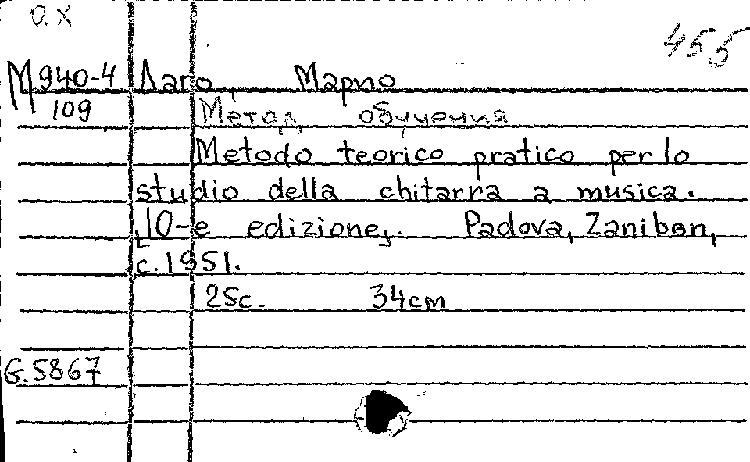 а.х
455
М940-4 Лаго, Марио
109 Метод обучения
Metodo teorico pratico per lo
studio della chitarra a musica.
10-e edizione,. Padova, Zanibon,
c.1951.
25c. 34cm
G.5867